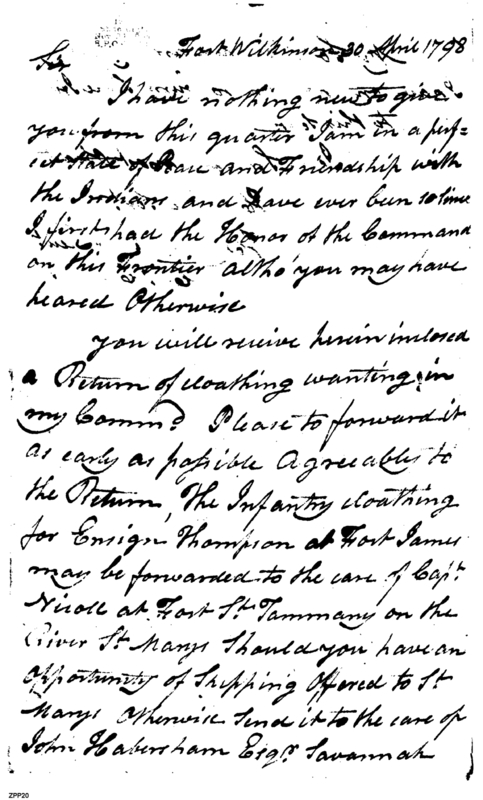 Fort Wilkinson 30 April 1798
Sir
I have nothing new to give
you from this quarter I am in a perf=
ect State of Peace and Friendship with
the Indians and have ever been so since
I first had the Honor of the Command
on this Frontier altho' you may have
heared Otherwise
you will receive herein inclosed
a Return of cloathing wanting in
my Commd. Please to forward it
as early as possible Agreeable to
the Return, The Infantry cloathing
for Ensign Thompson at Fort James
may be forwarded to the care of Capt.
Nicoll at Fort St. Tammany on the
River St. Marys Should you have an
opportunity of Shipping Offered to St
Marys Otherwise Send it to the care of
John Habersham Esqr. Savannah
ZPP20